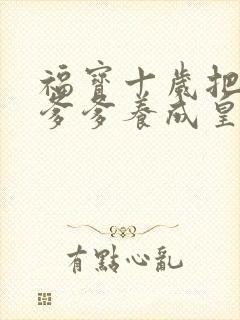 福寶十歲把
爹爹養成皇
有點心亂